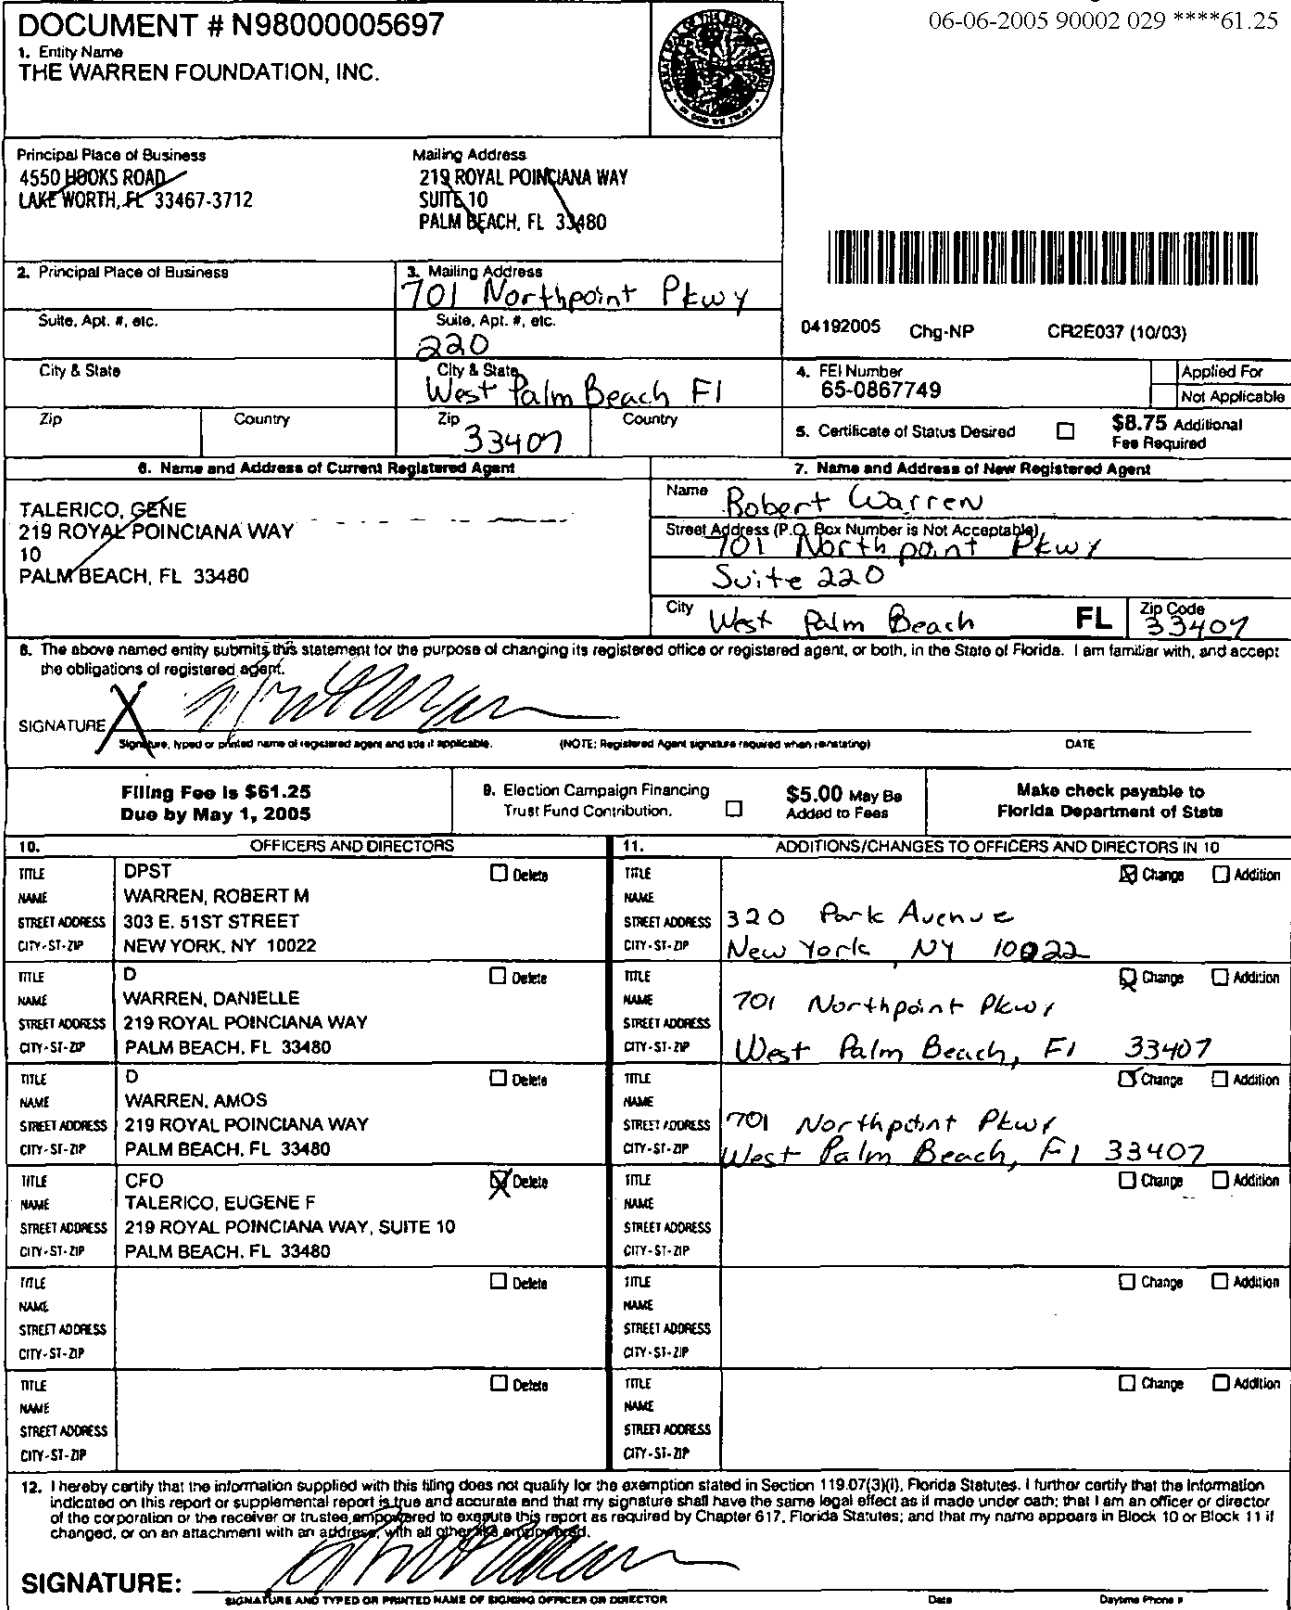 06-06-2005 90002 029 ****61.25
DOCUMENT # N98000005697
1. Entity Name
THE WARREN FOUNDATION, INC.
GREAT SEAL OF THE STATE OF FLORIDA
IN GOD WE TRUST
Principal Place of Business
4550 HOOKS ROAD
LAKE WORTH, FL 33467-3712
Mailing Address
219 ROYAL POINCIANA WAY
SUITE 10
PALM BEACH, FL 33480
2. Principal Place of Business
3. Mailing Address
701 Northpoint Pkwy
Suite, Apt. #, etc.
Suite, Apt. #, etc.
220
City & State
City & State
West Palm Beach Fl
Zip
Country
Zip
33407
Country
04192005 Chg-NP CR2E037 (10/03)
4. FEI Number
65-0867749
Applied For
Not Applicable
5. Certificate of Status Desired
$8.75 Additional
Fee Required
6. Name and Address of Current Registered Agent
TALERICO, GENE
219 ROYAL POINCIANA WAY
10
PALM BEACH, FL 33480
7. Name and Address of New Registered Agent
Name
Robert Warren
Street Address (P.O. Box Number is Not Acceptable)
701 Northpoint Pkwy
Suite 220
City
West Palm Beach
FL
Zip Code
33407
8. The above named entity submits this statement for the purpose of changing its registered office or registered agent, or both, in the State of Florida. I am familiar with, and accept
the obligations of registered agent.
SIGNATURE X
Signature, typed or printed name of registered agent and title if applicable.
(NOTE: Registered Agent signature required when reinstating)
DATE
Filing Fee is $61.25
Due by May 1, 2005
9. Election Campaign Financing
Trust Fund Contribution.
$5.00 May Be
Added to Fees
Make check payable to
Florida Department of State
10. OFFICERS AND DIRECTORS
TITLE DPST Delete
NAME WARREN, ROBERT M
STREET ADDRESS 303 E. 51ST STREET
CITY-ST-ZIP NEW YORK, NY 10022
TITLE D Delete
NAME WARREN, DANIELLE
STREET ADDRESS 219 ROYAL POINCIANA WAY
CITY-ST-ZIP PALM BEACH, FL 33480
TITLE D Delete
NAME WARREN, AMOS
STREET ADDRESS 219 ROYAL POINCIANA WAY
CITY-ST-ZIP PALM BEACH, FL 33480
TITLE CFO Delete
NAME TALERICO, EUGENE F
STREET ADDRESS 219 ROYAL POINCIANA WAY, SUITE 10
CITY-ST-ZIP PALM BEACH, FL 33480
TITLE Delete
NAME
STREET ADDRESS
CITY-ST-ZIP
TITLE Delete
NAME
STREET ADDRESS
CITY-ST-ZIP
11. ADDITIONS/CHANGES TO OFFICERS AND DIRECTORS IN 10
TITLE Change Addition
NAME
STREET ADDRESS 320 Park Avenue
CITY-ST-ZIP New York, NY 10022
TITLE Change Addition
NAME 701 Northpoint Pkwy
STREET ADDRESS
CITY-ST-ZIP West Palm Beach, Fl 33407
TITLE Change Addition
NAME
STREET ADDRESS 701 Northpoint Pkwy
CITY-ST-ZIP West Palm Beach, Fl 33407
TITLE Change Addition
NAME
STREET ADDRESS
CITY-ST-ZIP
TITLE Change Addition
NAME
STREET ADDRESS
CITY-ST-ZIP
TITLE Change Addition
NAME
STREET ADDRESS
CITY-ST-ZIP
12. I hereby certify that the information supplied with this filing does not qualify for the exemption stated in Section 119.07(3)(i), Florida Statutes. I further certify that the information
indicated on this report or supplemental report is true and accurate and that my signature shall have the same legal effect as if made under oath; that I am an officer or director
of the corporation or the receiver or trustee empowered to execute this report as required by Chapter 617, Florida Statutes; and that my name appears in Block 10 or Block 11 if
changed, or on an attachment with an address, with all other like empowered.
SIGNATURE:
SIGNATURE AND TYPED OR PRINTED NAME OF SIGNING OFFICER OR DIRECTOR
Date
Daytime Phone #